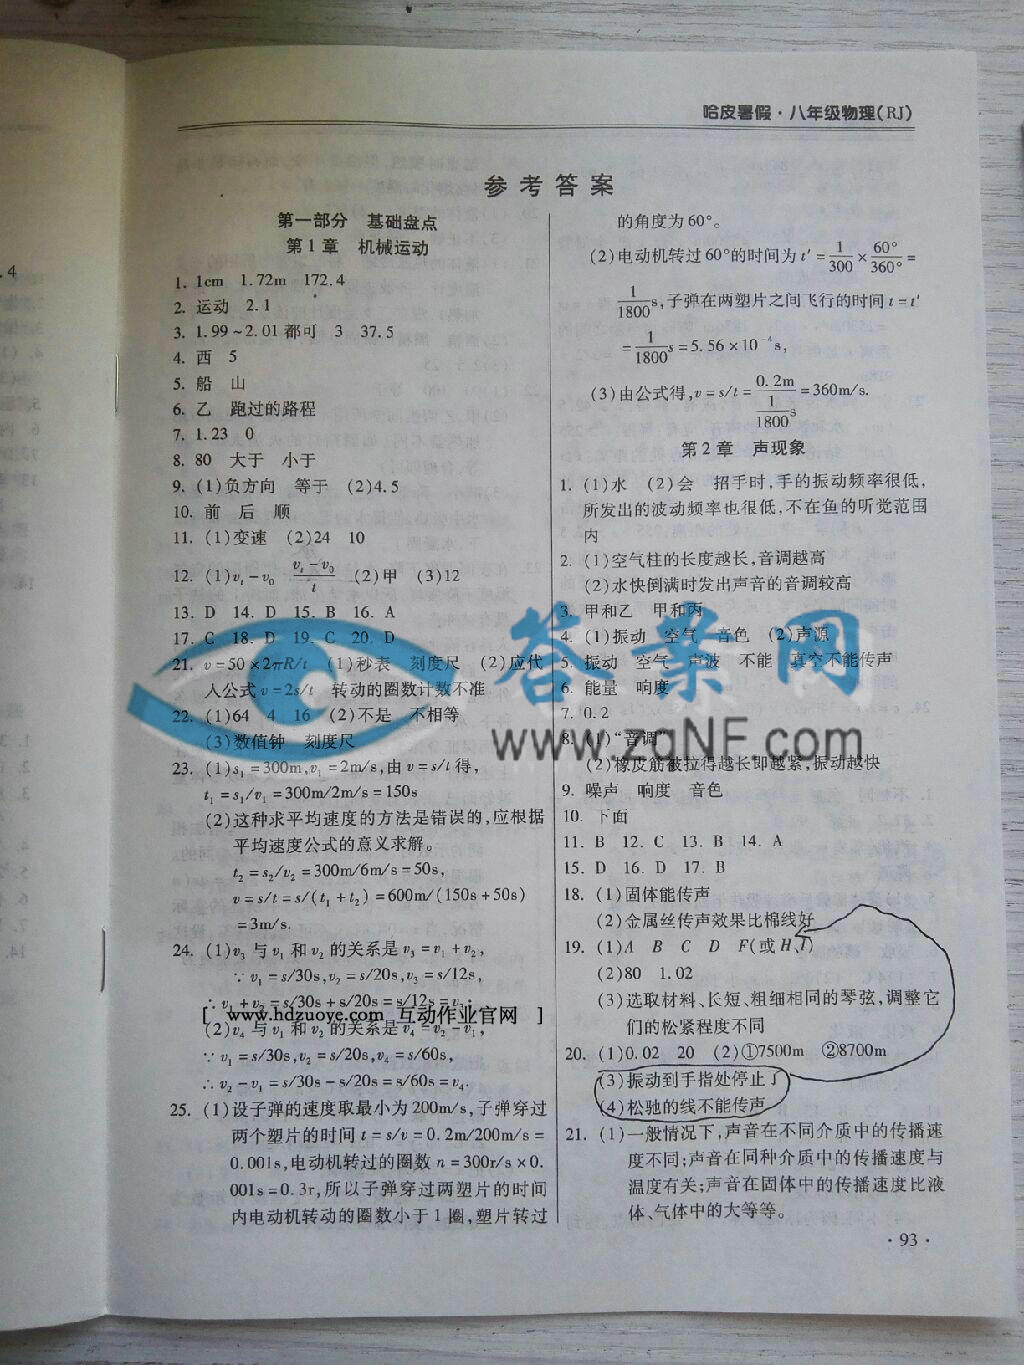 哈皮暑假·八年级物理(RJ)
参考答案
第一部分 基础盘点
第1章 机械运动
1. 1cm 1.72m 172.4
2. 运动 2.1
3. 1.99~2.01都可 3 37.5
4. 西 5
5. 船 山
6. 乙 跑过的路程
7. 1.23 0
8. 80 大于 小于
9. (1)负方向 等于 (2)4.5
10. 前 后 顺
11. (1)变速 (2)24 10
12. (1)vₜ-v₀ (vₜ-v₀)/t (2)甲 (3)12
13. D 14. D 15. B 16. A
17. C 18. D 19. C 20. D
21. v=50×2πR/t (1)秒表 刻度尺 (2)应代
入公式v=2s/t 转动的圈数计数不准
22. (1)64 4 16 (2)不是 不相等
(3)数值钟 刻度尺
23. (1)s₁=300m,v₁=2m/s,由v=s/t得,
t₁=s₁/v₁=300m/2m/s=150s
(2)这种求平均速度的方法是错误的,应根据
平均速度公式的意义求解。
t₂=s₂/v₂=300m/6m/s=50s,
v=s/t=s/(t₁+t₂)=600m/(150s+50s)
=3m/s.
24. (1)v₃与v₁和v₂的关系是v₃=v₁+v₂,
∵v₁=s/30s,v₂=s/20s,v₃=s/12s,
∴v₁+v₂=s/30s+s/20s=s/12s=v₃.
[ www.hdzuoye.com 互动作业官网 ]
(2)v₄与v₁和v₂的关系是v₄=v₂-v₁,
∵v₁=s/30s,v₂=s/20s,v₄=s/60s,
∴v₂-v₁=s/30s-s/20s=s/60s=v₄.
25. (1)设子弹的速度取最小为200m/s,子弹穿过
两个塑片的时间t=s/v=0.2m/200m/s=
0.001s,电动机转过的圈数n=300r/s×0.
001s=0.3r,所以子弹穿过两塑片的时间
内电动机转动的圈数小于1圈,塑片转过
的角度为60°。
(2)电动机转过60°的时间为t′=1/300×60°/360°=
1/1800s,子弹在两塑片之间飞行的时间t=t′
=1/1800s=5.56×10⁻⁴s,
(3)由公式得,v=s/t=0.2m/(1/1800s)=360m/s.
第2章 声现象
1. (1)水 (2)会 招手时,手的振动频率很低,
所发出的波动频率也很低,不在鱼的听觉范围
内
2. (1)空气柱的长度越长,音调越高
(2)水快倒满时发出声音的音调较高
3. 甲和乙 甲和丙
4. (1)振动 空气 音色 (2)声源
5. 振动 空气 声波 不能 真空不能传声
6. 能量 响度
7. 0.2
8. (1)“音调”
(2)橡皮筋被拉得越长即越紧,振动越快
9. 噪声 响度 音色
10. 下面
11. B 12. C 13. B 14. A
15. D 16. D 17. B
18. (1)固体能传声
(2)金属丝传声效果比棉线好
19. (1)A B C D F(或H、I)
(2)80 1.02
(3)选取材料、长短、粗细相同的琴弦,调整它
们的松紧程度不同
20. (1)0.02 20 (2)①7500m ②8700m
(3)振动到手指处停止了
(4)松驰的线不能传声
21. (1)一般情况下,声音在不同介质中的传播速
度不同;声音在同种介质中的传播速度与
温度有关;声音在固体中的传播速度比液
体、气体中的大等等。
·93·
答案网
www.zqNF.com